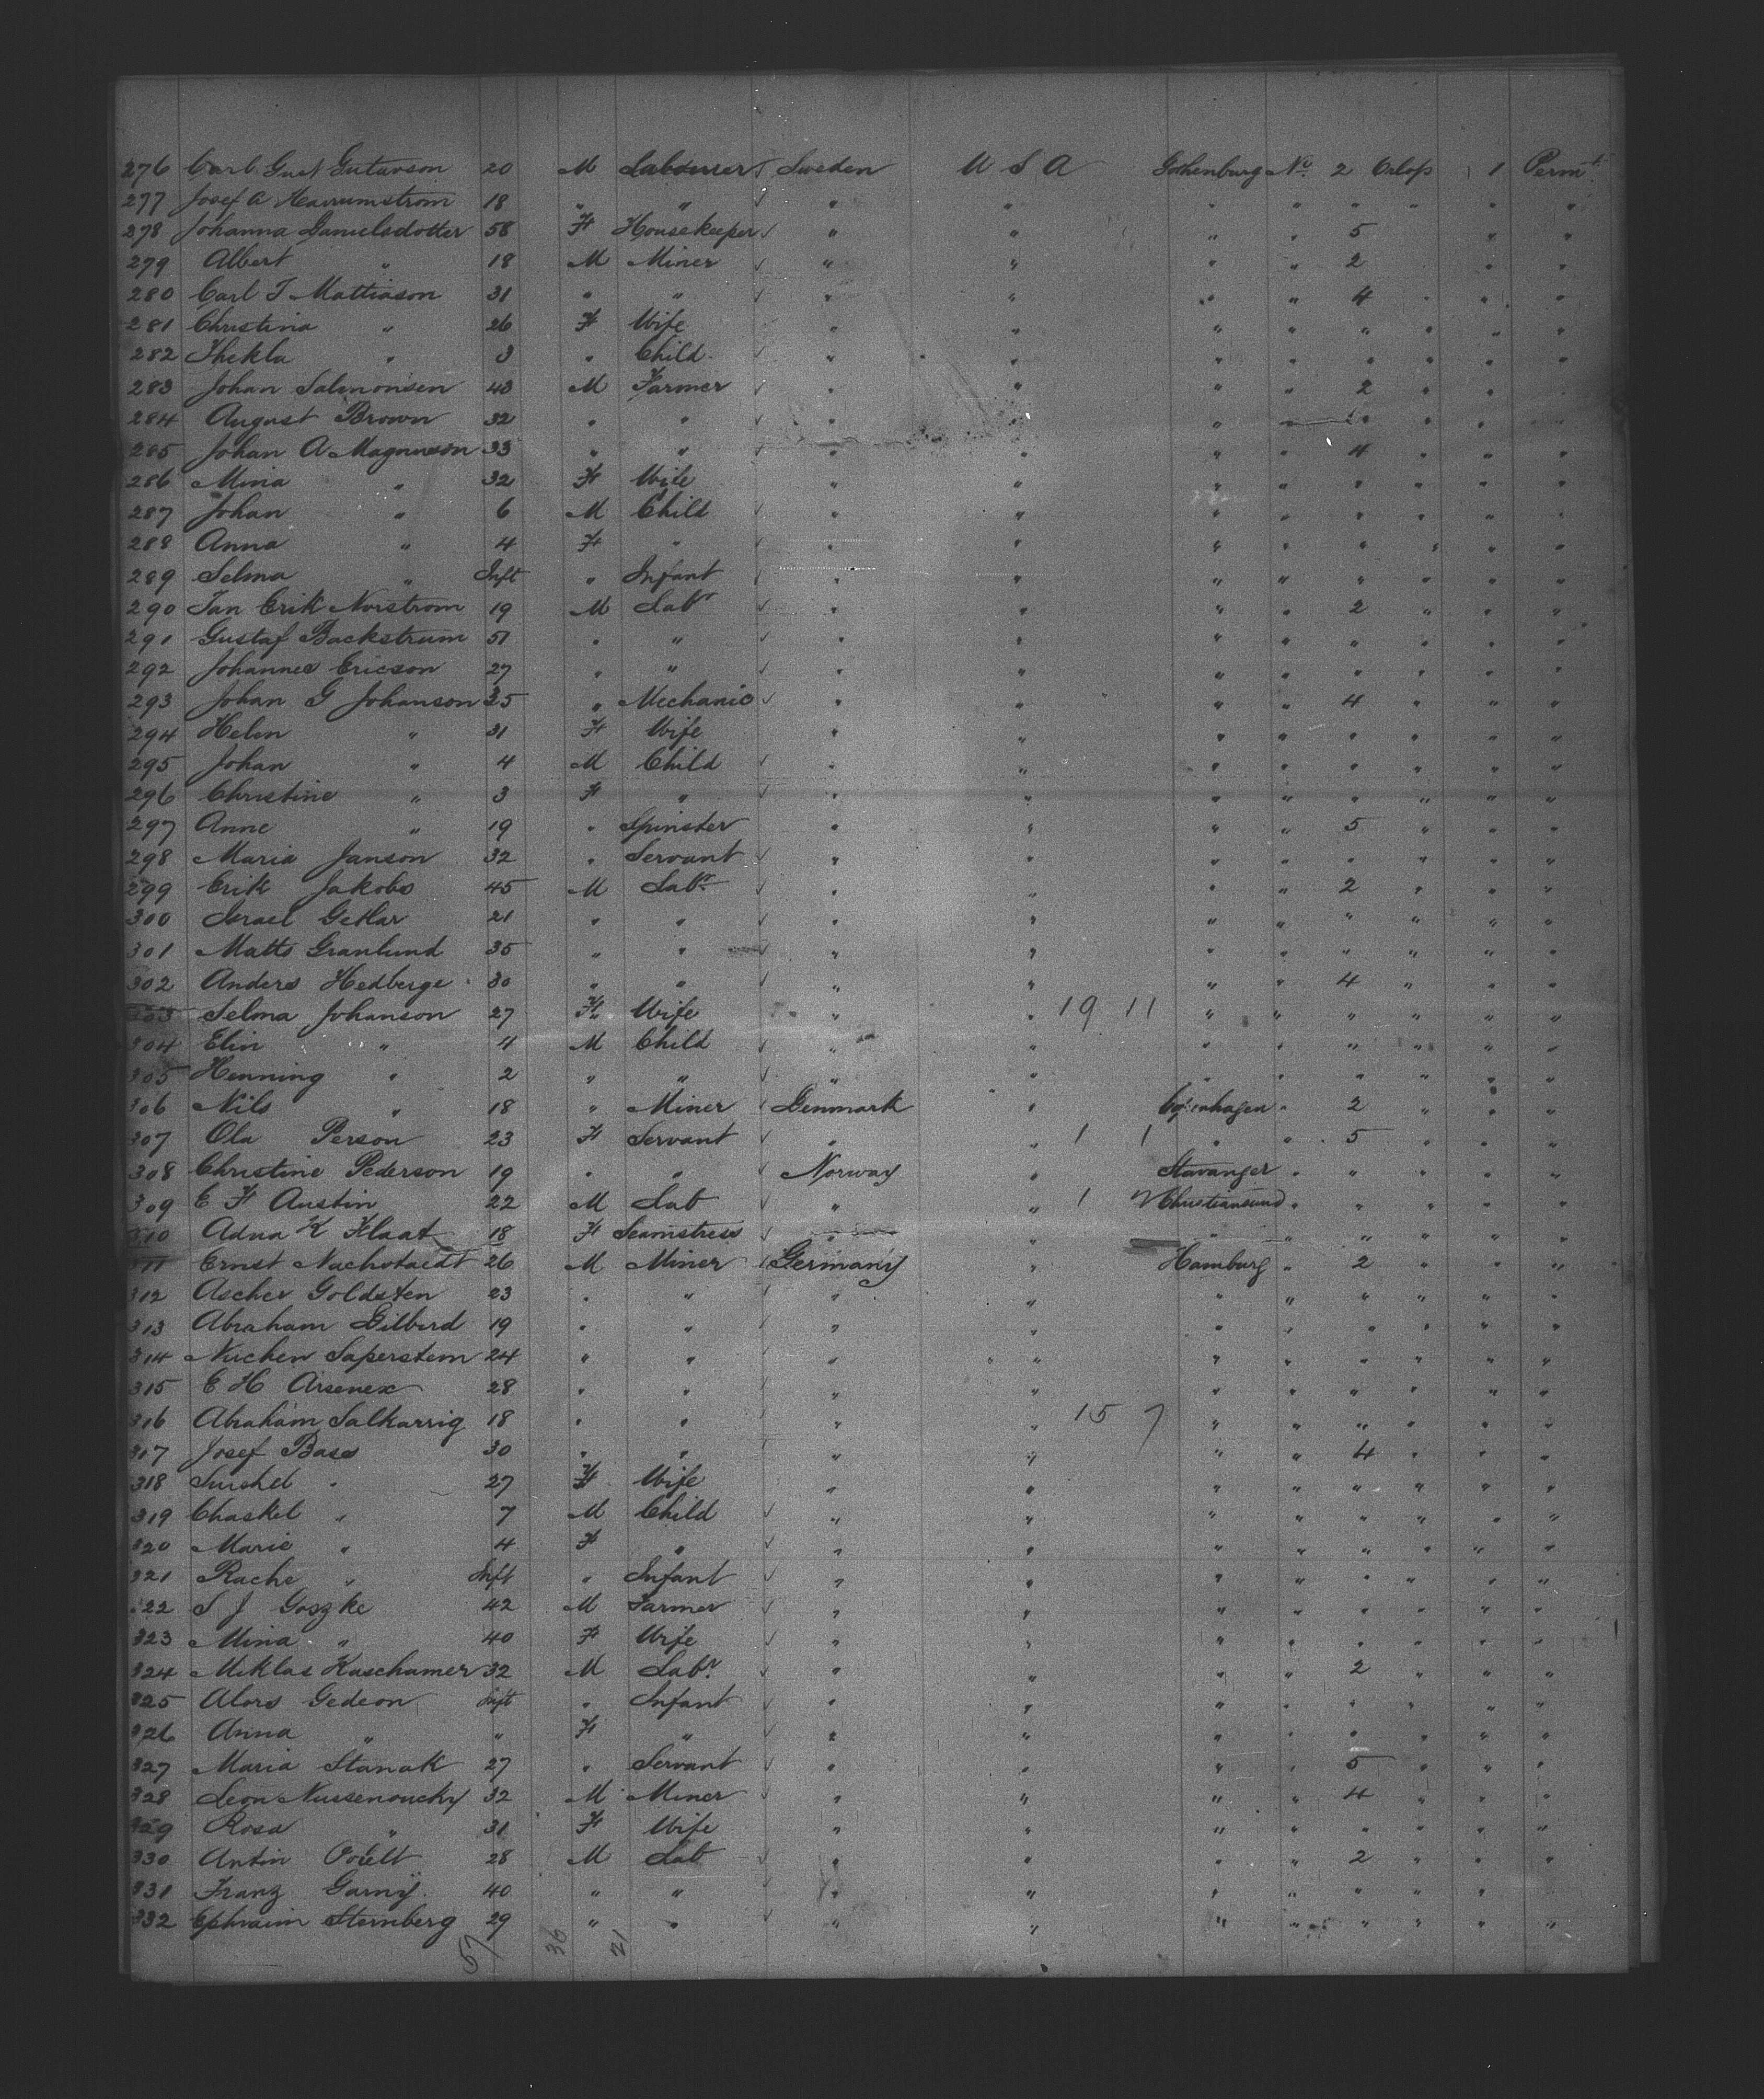 276 Carl Gust Gutavson 20 M Labourer Sweden U S A Gothenburg No 2 Orlop 1 Permt
277 Josef A Harrumstrom 18 " " " " " " " " " "
278 Johanna Danielsdotter 58 F Housekeeper " " " " 5 " "
279 Albert " 18 M Miner " " " " 2 " "
280 Carl J Mattiason 31 " " " " " " 4 " " "
281 Christina " 26 F Wife " " " " " " " "
282 Thekla " 3 " Child " " " " " " " "
283 Johan Salomonsen 43 M Farmer " " " " 2 " " "
284 August Brown 32 " " " " " " " " "
285 Johan A Magnuson 33 " " " " " " 4 " " "
286 Mina " 32 F Wife " " " " " " " "
287 Johan " 6 M Child " " " " " " " "
288 Anna " 4 F " " " " " " " " "
289 Selma " Inft " Infant " " " " " " " "
290 Jan Erik Norstrom 19 M Labr " " " " 2 " " "
291 Gustaf Backstrum 51 " " " " " " " " " "
292 Johannes Ericson 27 " " " " " " " " " "
293 Johan G Johanson 35 " Mechanic " " " " 4 " " "
294 Helen " 31 F Wife " " " " " " " "
295 Johan " 4 M Child " " " " " " " "
296 Christine " 3 F " " " " " " " " "
297 Anne " 19 " Spinster " " " " 5 " " "
298 Maria Janson 32 " Servant " " " " " " " "
299 Erik Jakobs 45 M Labr " " " " 2 " " "
300 Israel Getlar 21 " " " " " " " " " "
301 Matts Granlund 35 " " " " " " " " " "
302 Anders Hedberge 30 " " " " " " 4 " " "
303 Selma Johanson 27 F Wife " " 19 11 " " " " " "
304 Elin " 4 M Child " " " " " " " "
305 Henning " 2 " " " " " " " " " "
306 Nils " 18 " Miner Denmark " Copenhagen " 2 " " "
307 Ola Person 23 F Servant " " 1 1 " " 5 " " "
308 Christine Pederson 19 " " Norway " Stavanger " " " " "
309 E F Austin 22 M Lab " " 1 Christiansund " " " " "
310 Adna K Flaat 18 F Seamstress " " " " " " " "
311 Ernst 26 M Miner Germany " Hamburg " 2 " " "
312 Ascher Goldsten 23 " " " " " " " " " "
313 Abraham Gilberd 19 " " " " " " " " " "
314 Nuchen Saperstem 24 " " " " " " " " " "
315 E H Arsenex 28 " " " " " " " " " "
316 Abraham Salkarrig 18 " " " " 15 7 " " " " " "
317 Josef Bass 30 " " " " " " 4 " " "
318 " 27 F Wife " " " " " " " "
319 Chaskel " 7 M Child " " " " " " " "
320 Marie " 4 F " " " " " " " " "
321 Rache " Inft " Infant " " " " " " " "
322 S J Goszke 42 M Farmer " " " " " " " "
323 Mina " 40 F Wife " " " " " " " "
324 Miklas Kaschamer 32 M Labr " " " " 2 " " "
325 Alors Gedeon Inft " Infant " " " " " " " "
326 Anna " " F " " " " " " " " "
327 Maria Stanak 27 " Servant " " " " 5 " " "
328 Leon Nussenoucky 32 M Miner " " " " 4 " " "
329 Rosa " 31 F Wife " " " " " " " "
330 Antin 28 M Lab " " " " 2 " " "
331 Franz Garny 40 " " " " " " " " " "
332 Ephraim Sternberg 29 " " " " " " " " " "
57 36 21